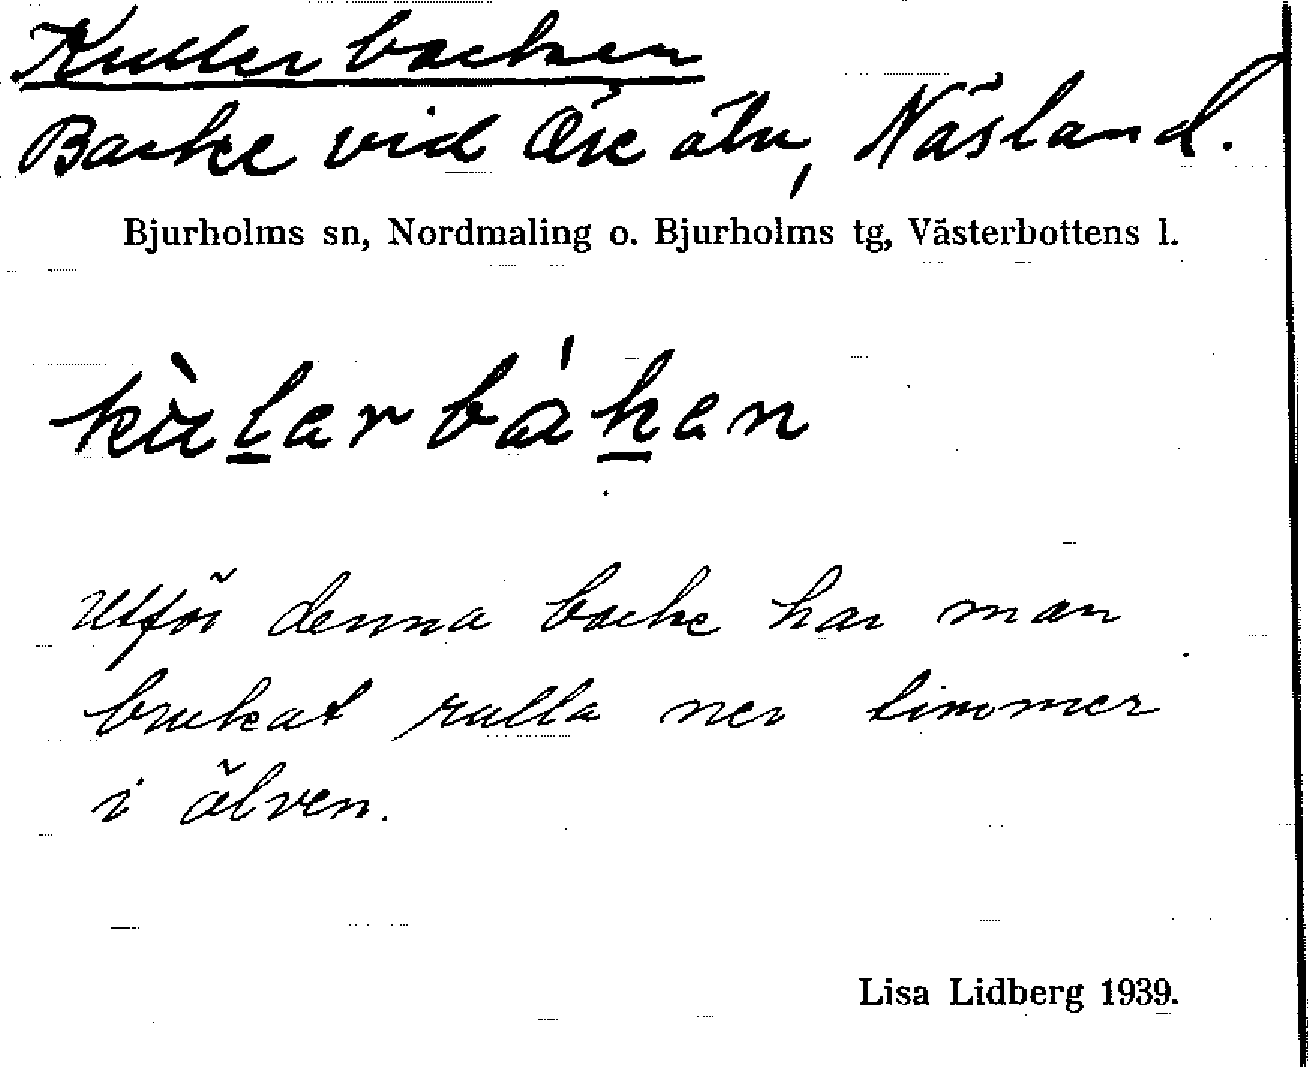 Kullerbacken
Backe vid Öre älv, Näsland.
Bjurholms sn, Nordmaling o. Bjurholms tg, Västerbottens l.
kùlarbákan
Utför denna backe har man
brukat rulla ner timmer
i älven.
Lisa Lidberg 1939.